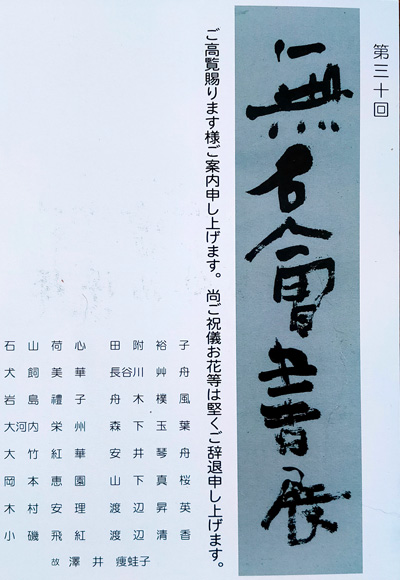 第三十回
無名會書展
ご高覧賜ります様ご案内申し上げます。尚ご祝儀お花等は堅くご辞退申し上げます。
石山荷心 田附裕子
犬飼美華 長谷川艸舟
岩島禮子 舟木樸風
大河内栄州 森下玉葉
大竹紅華 安井琴舟
岡本恵園 山下真桜
木村安理 渡辺昇英
小磯飛紅 渡辺清香
故 澤井痩蛙子